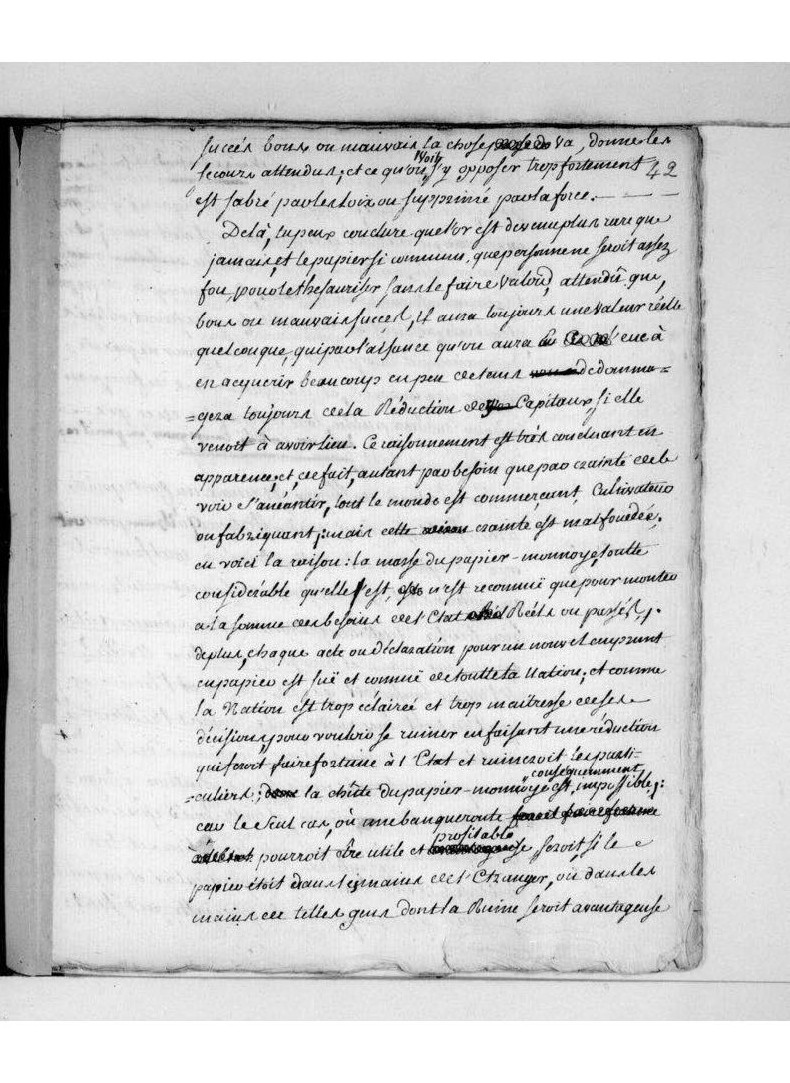 succés bons ou mauvais la chose va, donne les
secours attendus; et ce qu'on voit s'y opposer trop fortement 42
est sabré par les loix ou supprimé par la force.
De là, tu peux conclure que l'or est devenu plus rare que
jamais, et le papier si commun, que personne ne seroit assez
fou pour le thesauriser sans le faire valoir, attendû que,
bons ou mauvais succés, il aura toujours une valeur réelle
quelconque, qui par l'aisance qu'on aura eue à
en acquerir beaucoup en peu de tems dedomma=
=gera toujours de la Réduction de Capitaux, si elle
venoit à avoir lieu. Ce raisonnement est trés concluant en
apparence; et, de fait, autant par besoin que par crainte de le
voir s'anéantir, tout le monde est commerçant, Cultivateur
ou fabriquant; mais cette crainte est mal fondée,
en voici la raison: la masse du papier-monnoye, toutte
considérable qu'elle est, n'est reconnuë que pour monter
a la somme des besoins de l'Etat Réels ou passés;
de plus, chaque acte ou déclaration pour un nouvel emprunt
en papier est suë et connuë de toutte la Nation; et comme
la Nation est trop éclairée et trop maitresse de ses
décisions, pour vouloir se ruiner en faisant une réduction
qui feroit faire fortune à l'Etat et ruineroit les parti=
=culiers; la chûte du papier-monnoye est, conséquemment, impossible;
car le seul cas, où une banqueroute
pourroit être utile et profitable, seroit si le
papier étoit dans les mains de l'Etranger, ou dans les
mains de telles gens dont la Ruine seroit avantageuse